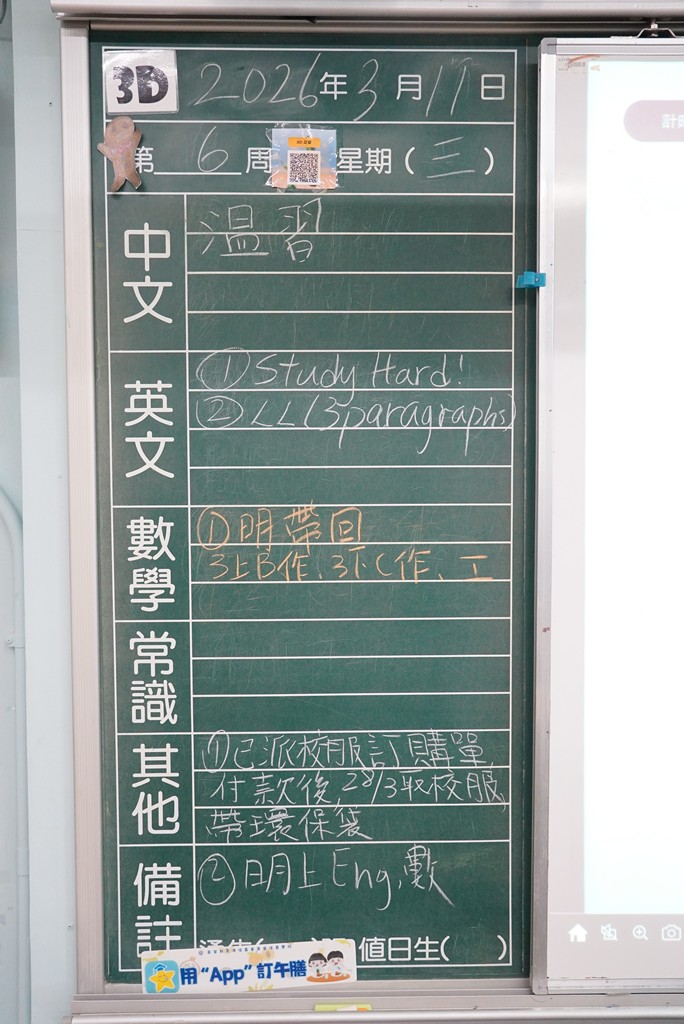 3D 2026年3月17日
第 6 周 星期(三)
中文
溫習
英文
① Study Hard!
② LL (3paragraphs)
數學
① 明帶回
3上B作、3下C作、工
常識
其他
① 已派校服訂購單,
付款後,28/3取校服,
帶環保袋
備註
② 明上Eng,數
值日生( )
用“App”訂午膳